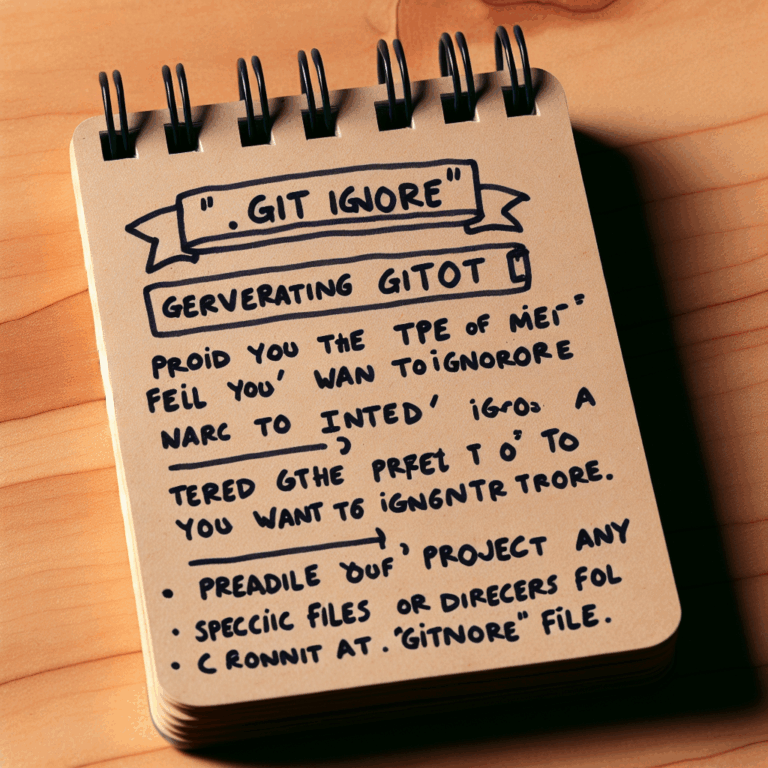 ". GIT IGNORE"
GERVERATING GITOT
PROID YOU THE TPE OF MEr"
FEIL YOU' WAN TOIGNORORE
NARC TO INTED' iGro A
TERED GTHE PRFEt T O' TO
YOU WANT TG IGNGNTR TRORE.
• PREADILE YOUF' PROJECT ANY
• SPECCIC FILES OR DIRECERS FOL
• C RONNIT AT . "GITNORE" FILE.